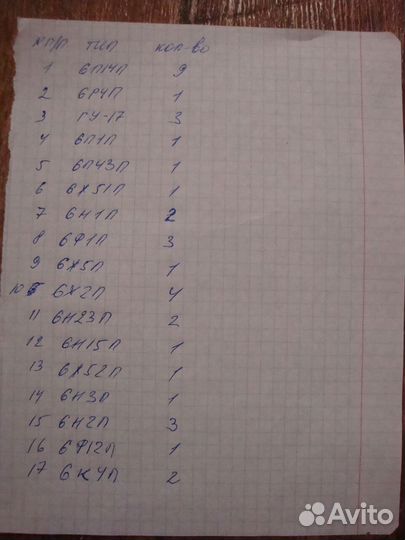 № п/п тип кол-во
1 6П14П 9
2 6Р4П 1
3 ГУ-17 3
4 6П1П 1
5 6П43П 1
6 6Х51П 1
7 6Н1П 2
8 6Ф1П 3
9 6Х5П 1
10 6Х2П 4
11 6Н23П 2
12 6Н15П 1
13 6Х52П 1
14 6Н3П 1
15 6Н2П 3
16 6Ф12П 1
17 6К4П 2
Avito